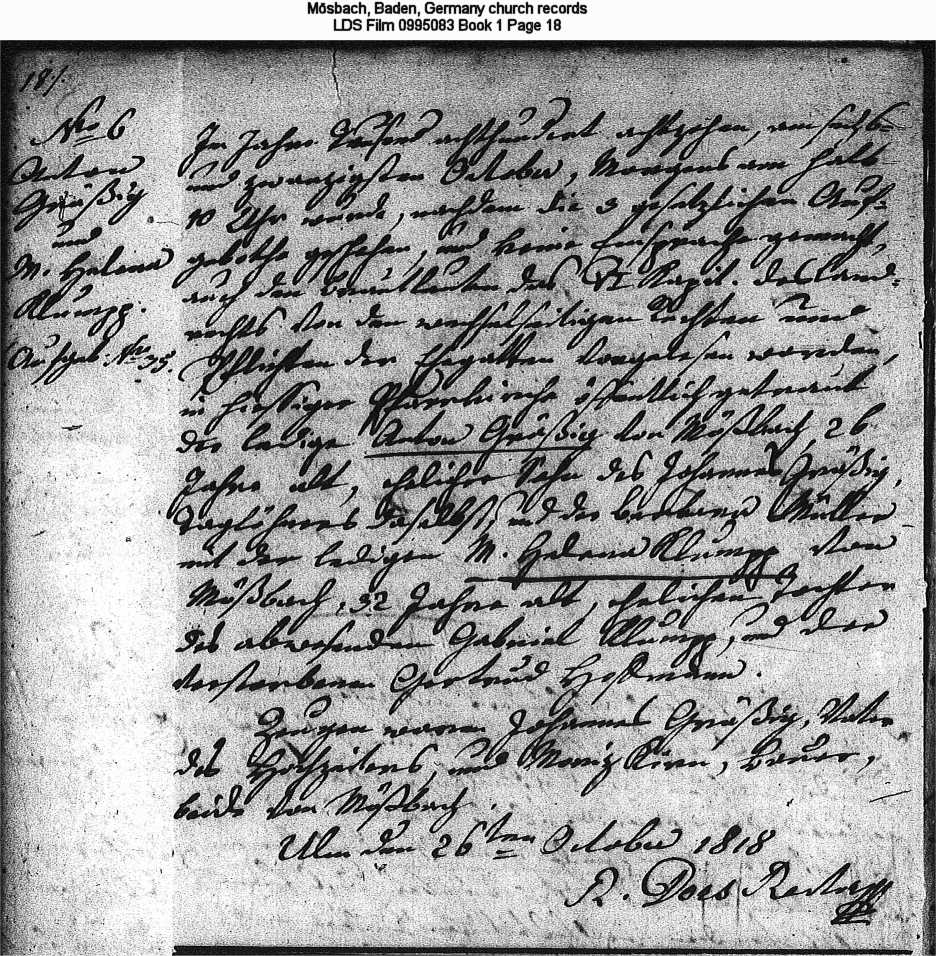 Mösbach, Baden, Germany church records
LDS Film 0995083 Book 1 Page 18
18/.
Nro 6
Anton
Gräßig
und
M. Helena
Klumpp.
Aufgeb. Nro 35.
Im Jahre Tausend achthundert achtzehen, am sechs=
und zwanzigsten October, Morgens um halb
10 Uhr wurde, nachdem die 3 gesetzlichen Auf=
gebothe geschehen, und keine Einsprache gemacht,
auch den Brautleuten das VI Kapit. des Land=
rechts von den wechselseitigen Rechten und
Pflichten der Ehegatten vorgelesen worden,
in hiesiger Pfarrkirche öffentlich getraut
der ledige Anton Gräßig von Mößbach, 26
Jahre alt, ehelicher Sohn des Johannes Gräßig,
Taglöhners daselbst, und der Müller
mit der ledigen M. Helena Klumpp von
Mößbach, 32 Jahre alt, ehelichen Tochter
des abwesenden Gabriel Klumpp, und der
verstorbenen Gertrud Hoffmann.
Zeugen waren Johannes Gräßig, Vater
des Hochzeiters, und Moriz Kirn, Bauer,
beide von Mößbach.
Ulm den 26ten October 1818
R. Dors Rector